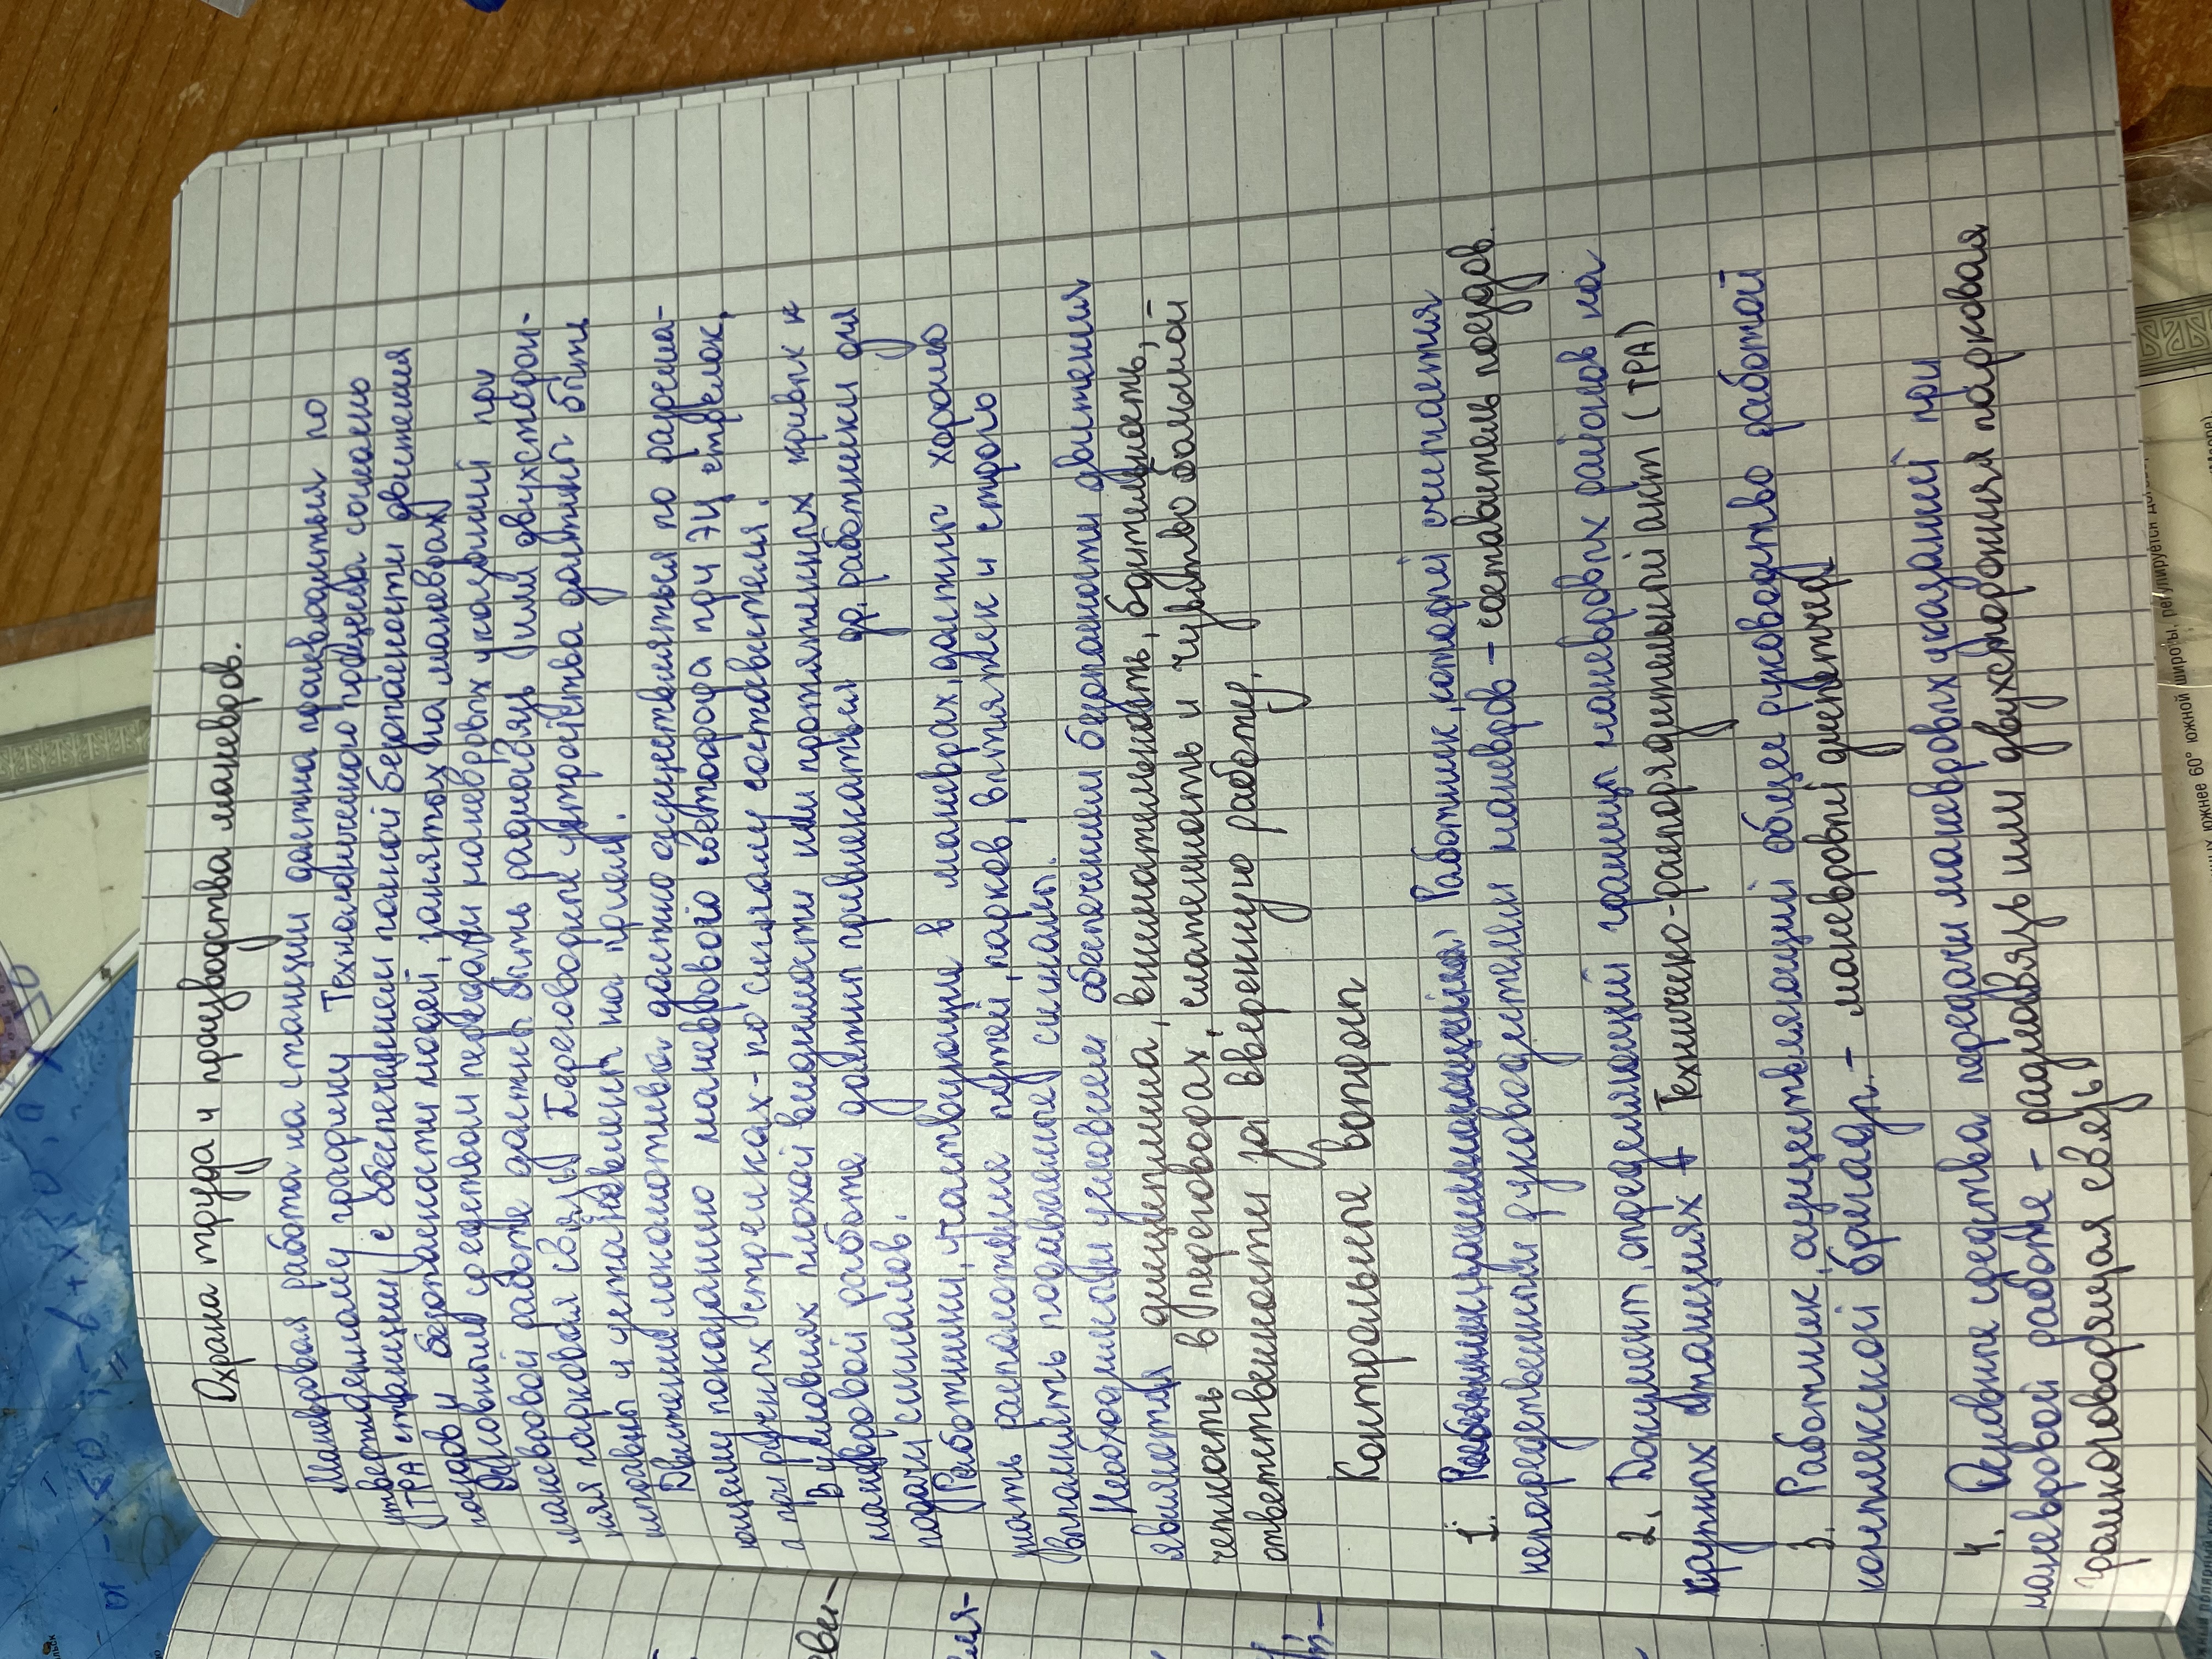 Охрана труда и производства маневров.
Маневровая работа на станции должна производиться по
утвержденному графику Технологического процесса согласно
(ТРА станции) с обеспечением полной безопасности движения
поездов и безопасности людей, занятых на маневрах)
Основным средством передачи маневровых указаний при
маневровой работе должны быть радиосвязь (или двухсторон-
няя парковая связь) Переговорные устройства должны быть
исправны и установлены на прием.
Движение локомотива должно осуществляться по разреша-
ющему показанию маневрового светофора при ЭЦ стрелок,
а при ручных стрелках - по сигналу составителя.
В условиях плохой видимости или протяженных кривых к
маневровой работе должны привлекаться др. работники для
подачи сигналов.
Работники, участвующие в маневрах, должны хорошо
знать расположение путей, парков, вытяжек и строго
выполнять подаваемые сигналы.
Необходимыми условием обеспечением безопасности движения
являются дисциплина, внимательность, бдительность,-
четкость в переговорах, слаженность и чувство большой
ответственности за вверенную работу.
Контрольные вопросы
1. Работник, который считается
непосредственным руководителем маневров - составитель поездов.
2. Документ, определяющий границы маневровых районов на
крупных станциях - Техническо-распорядительный акт (ТРА)
3. Работник, осуществляющий общее руководство работой
комплексной бригады.- маневровый диспетчер
4. Основные средства передачи маневровых указаний при
маневровой работе - радиосвязь или двухсторонняя парковая
громкоговорящая связь)
южнее 60° южной широты, регулируется